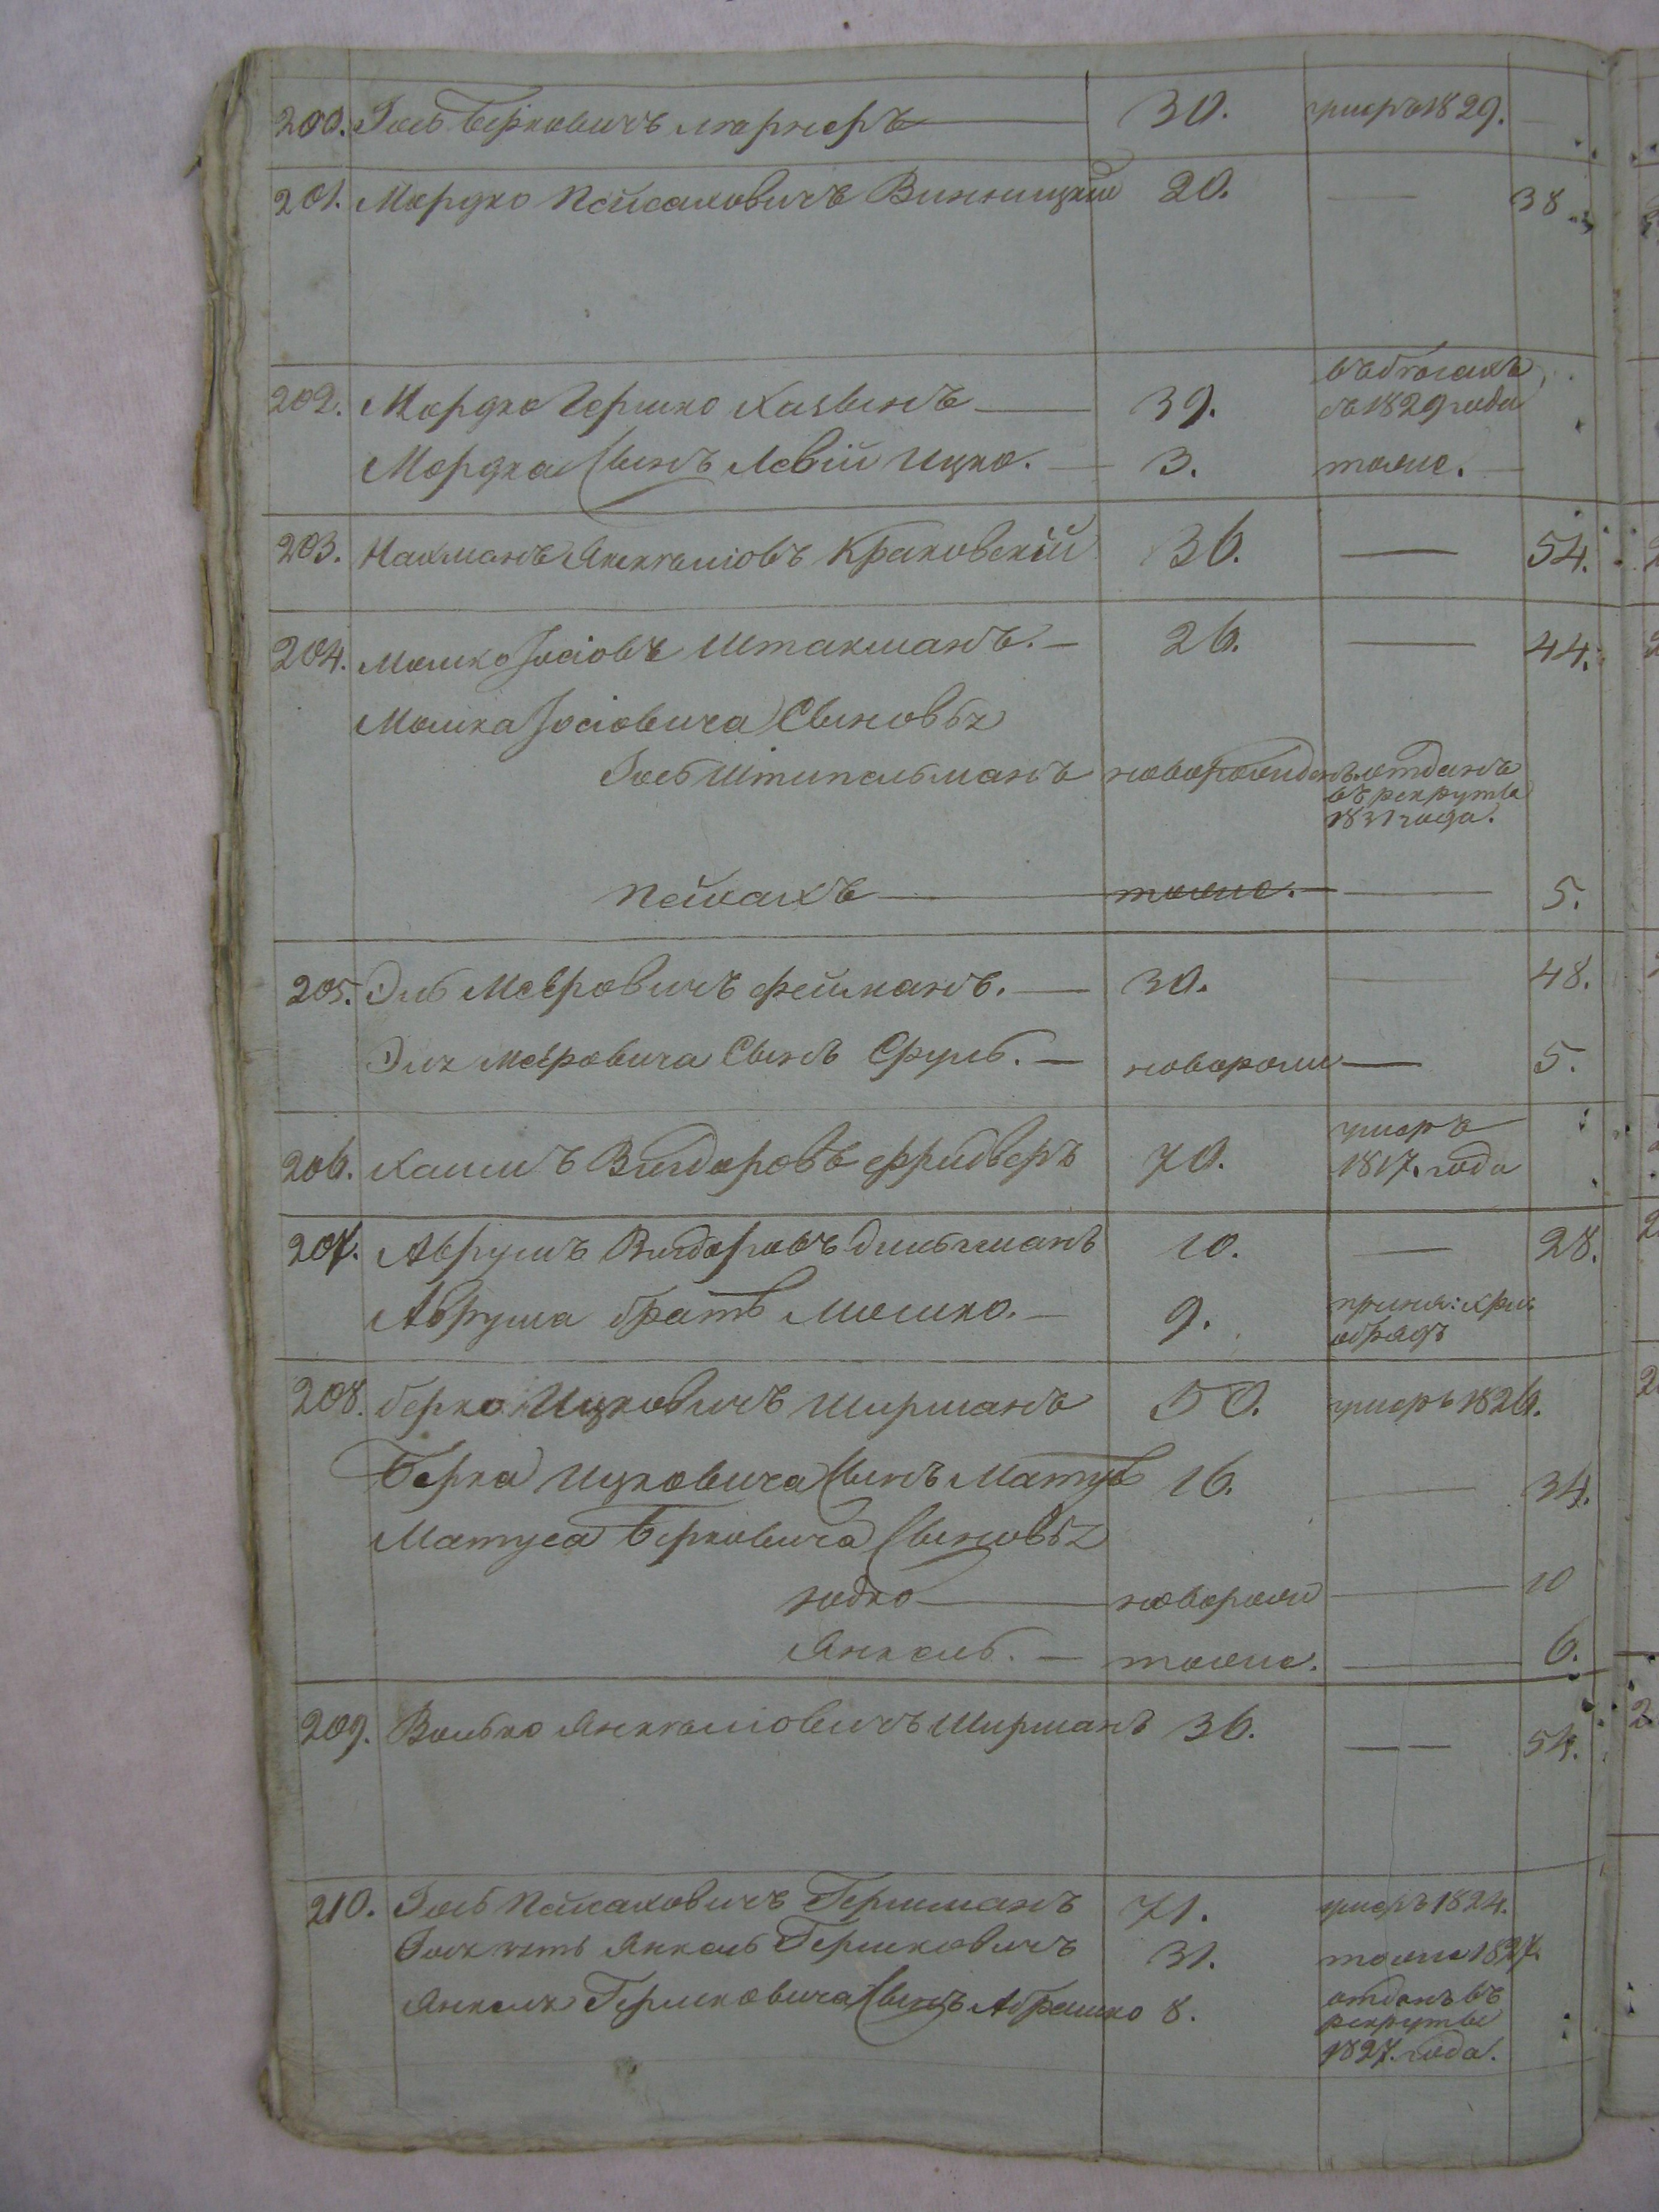 200. Іосъ Берковичъ Лернеръ 30. умеръ 1829.
201. Мордко Пейсаховичъ Винницкій 20. — 38
202. Мордко Гершко Хазынъ — 39. въ бѣгахъ
съ 1829 года
Мордка Сынъ Левій Ицко. — 3. тоже.
203. Нахманъ Янкеліовъ Краковскій 36. — 54.
204. Мошко Іосіовъ Штакманъ. — 26. — 44.
Мошка Іосіовича Сыновья
Іось Штипельманъ новорожденъ. отданъ
въ рекруты
1831 года.
Пейсахъ — тоже. — 5.
205. Эль Меѣровичъ Фейманъ. — 30. — 48.
Эля Меѣровича Сынъ Сруль. — новорож — 5.
206. Хаимъ Вигдоровъ 70. умеръ
1817. года
207. Аврумъ Вигдоровъ 10. — 28.
Аврума братъ Мошко. — 9. приня: хри:
обрядъ
208. Берко Ицковичъ Ширманъ 50. умеръ 1826.
Берка Ицковича Сынъ Матусъ 16. — 34.
Матуса Берковича Сыновья
Юдко — новорож — 10
Янкель. — тоже. — 6.
209. Волько Янкеліовичъ Ширманъ 36. — — 54.
210. Іось Пейсаховичъ Гершманъ 71. умеръ 1824.
Іося зять Янкель Гершковичъ 31. тоже 1827.
Янкеля Гершковича Сынъ Абрашко 8. отданъ въ
рекруты
1827. года.